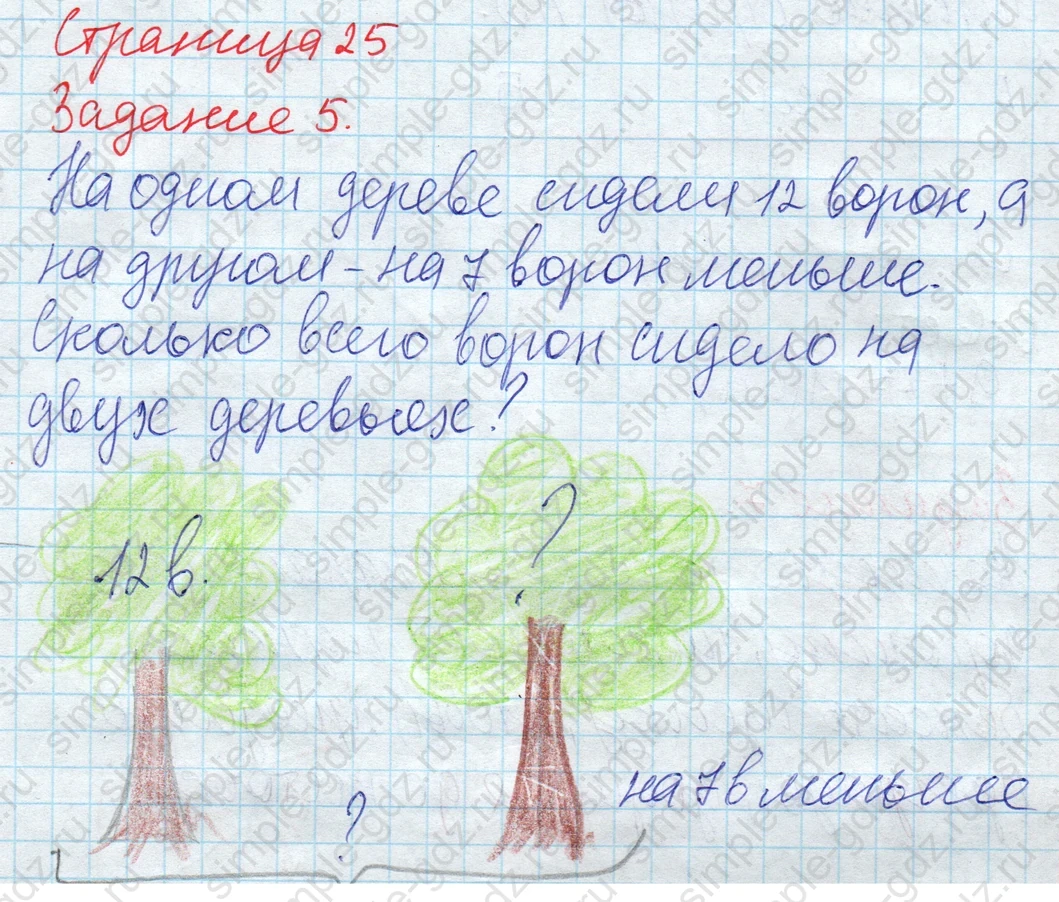 Страница 25
Задание 5.
На одном дереве сидели 12 ворон, а
на другом - на 7 ворон меньше.
Сколько всего ворон сидело на
двух деревьях?
12 в.
?
на 7 в меньше
?
simple-gdz.ru